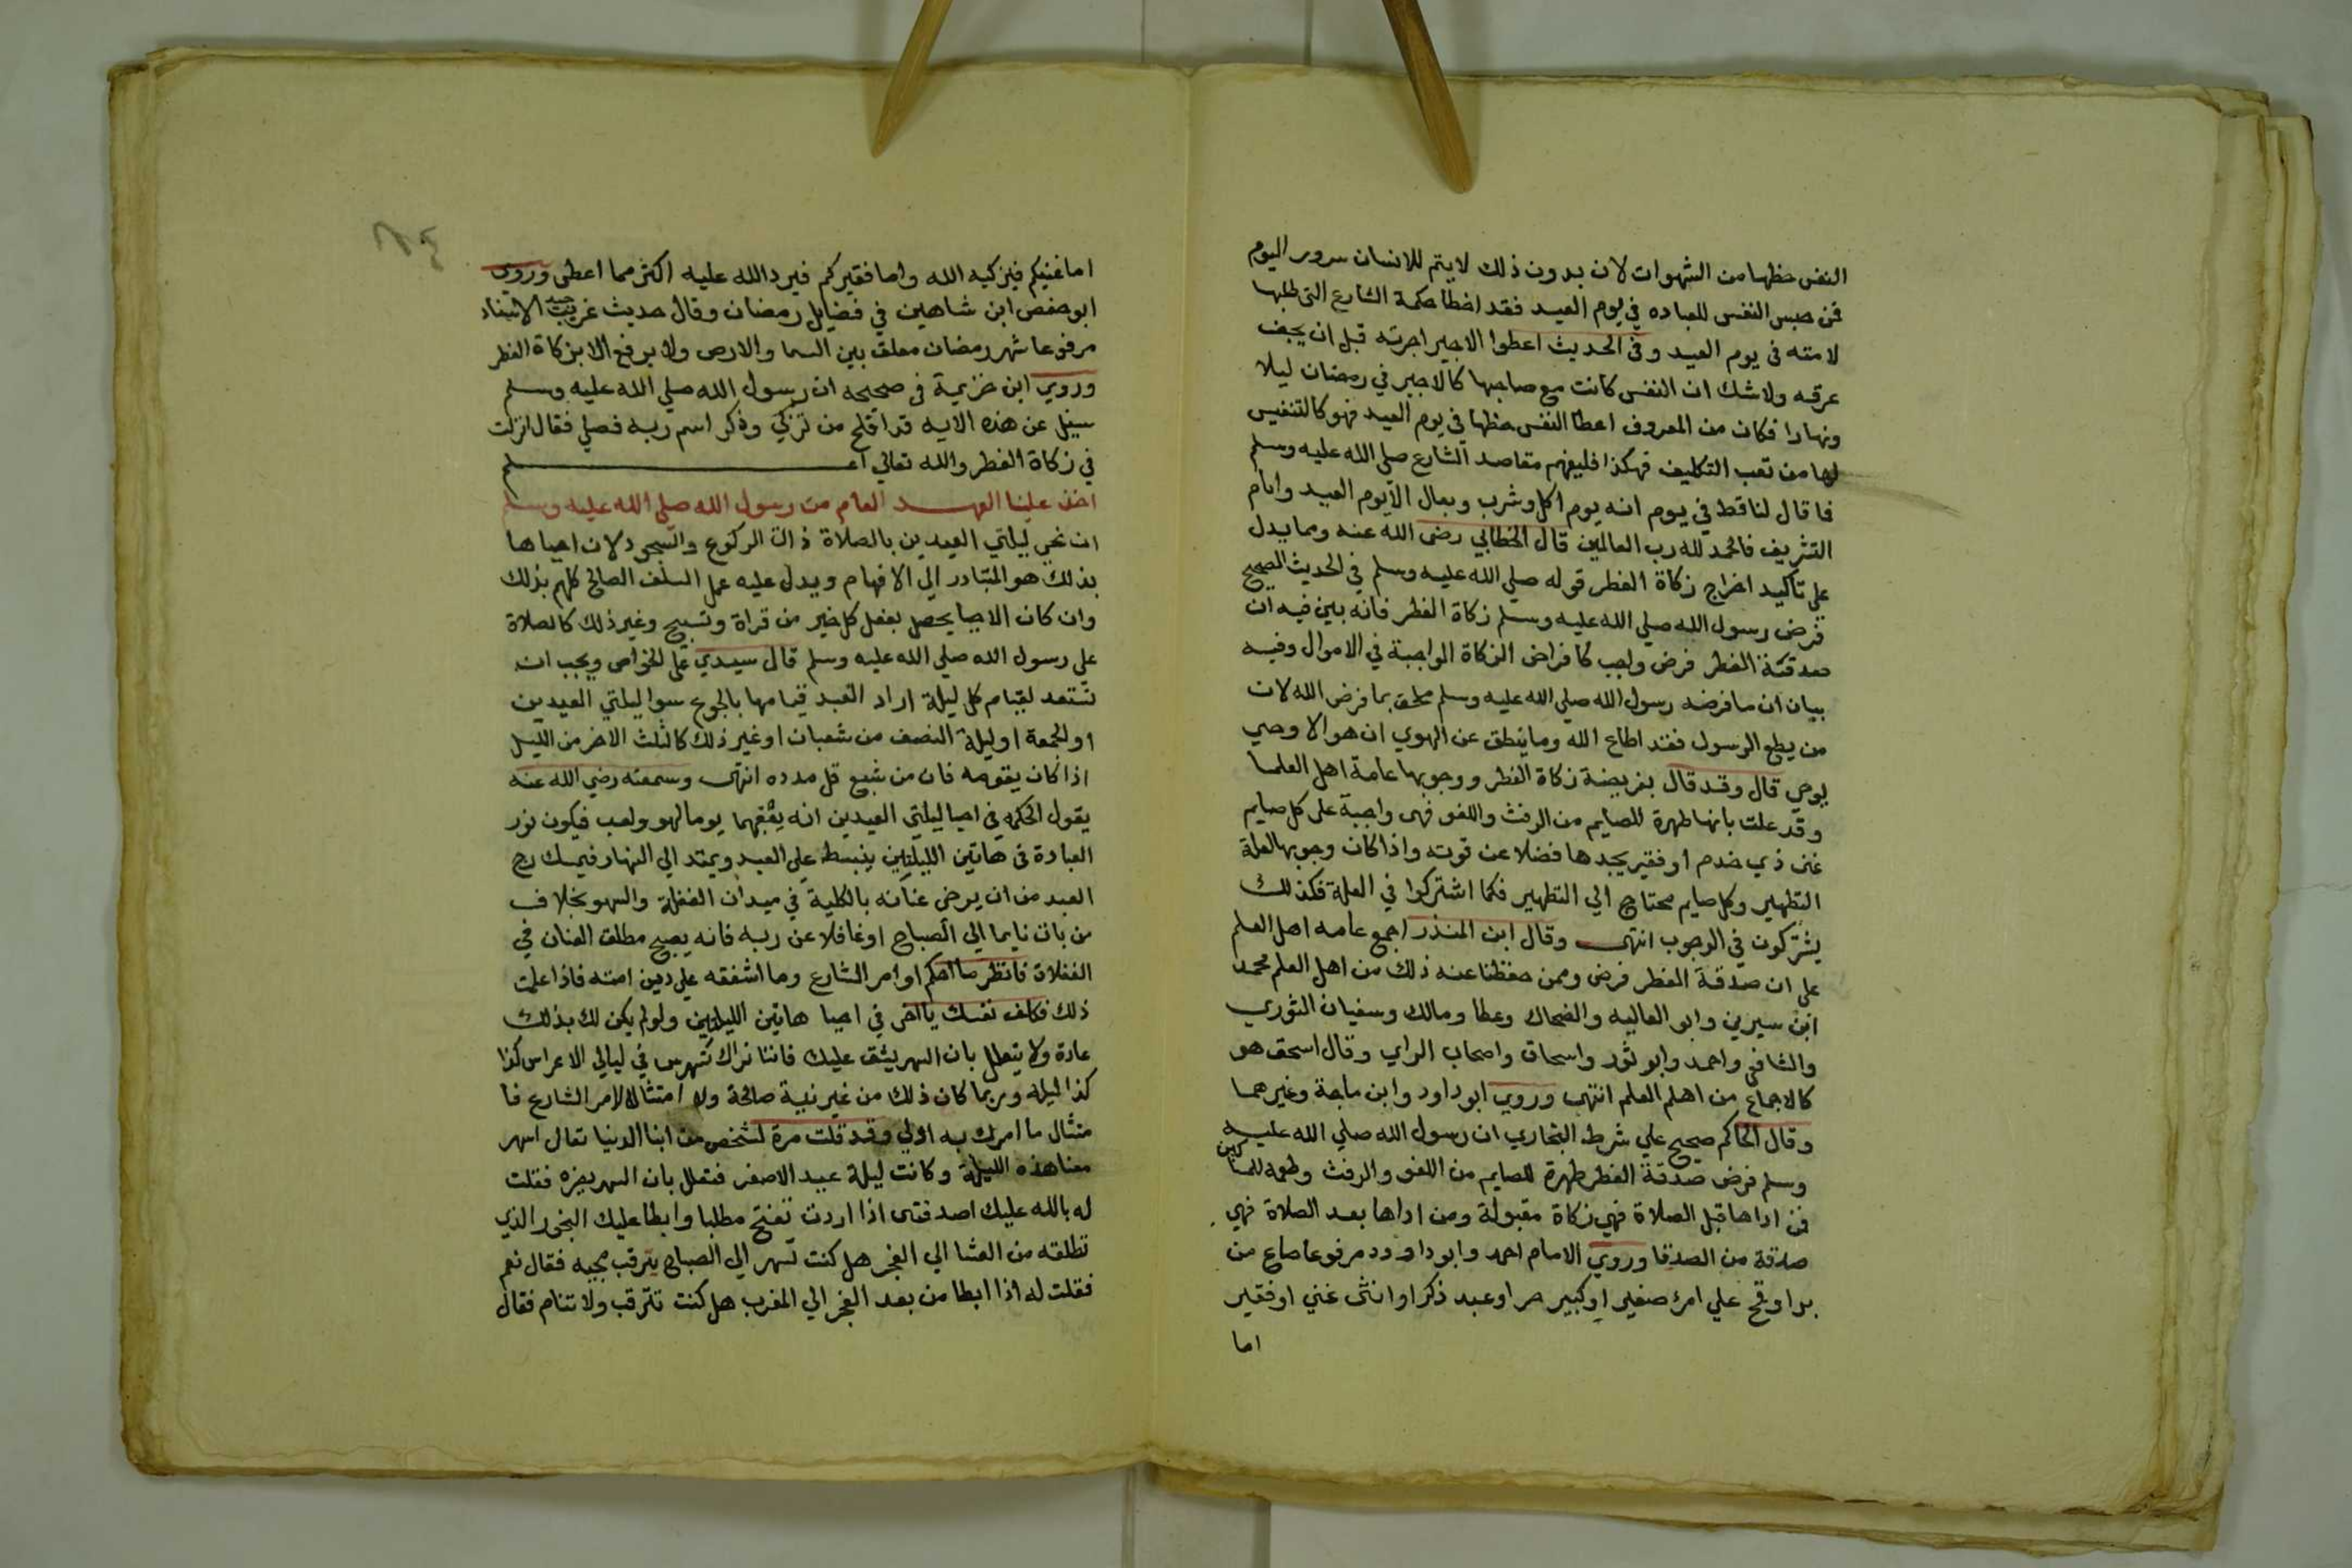 النفس حظها من الشهوات لان بدون ذلك لا يتم للانسان سرور اليوم
فمن حبس النفس للعباده في يوم العيد فقد اخطا حكمة الشارع التي طلبها
لامته في يوم العيد وفي الحديث اعطوا الاجير اجرته قبل ان يجف
عرقه ولا شك ان النفس كانت مع صاحبها كالاجير في رمضان ليلا
ونهارا فكان من المعروف اعطا النفس حظها في يوم العيد فهو كالتنفيس
لها من تعب التكليف فهكذا فليفهم مقاصد الشارع صلي الله عليه وسلم
فما قال لنا قط في يوم انه يوم اكل وشرب وبعال الا يوم العيد وايام
التشريف فالحمد لله رب العالمين قال الخطابي رضي الله عنه ومما يدل
علي تاكيد اخراج زكاة الفطر قوله صلي الله عليه وسلم في الحديث الصحيح
فرض رسول الله صلي الله عليه وسلم زكاة الفطر فانه بين فيه ان
صدقة الفطر فرض واجب كافراض الزكاة الواجبة في الاموال وفيه
بيان ان ما فرضه رسول الله صلي الله عليه وسلم ملحق بما فرض الله لان
من يطع الرسول فقد اطاع الله وما ينطق عن الهوي ان هو الا وحي
يوحي قال وقد قال بفريضة زكاة الفطر ووجوبها عامة اهل العلما
وقد علت بانها طهرة للصايم من الرفث واللغو فهى واجبة على كل صايم
غنى ذي خدم او فقير يجدها فضلا عن قوته واذا كان وجوبها لعلة
التطهير وكل صايم محتاج الي التطهير فكما اشتركوا في العلة فكذلك
يشتركون في الوجوب انتهى وقال ابن المنذر اجمع عامه اهل العلم
علي ان صدقة الفطر فرض وممن حفظنا عنه ذلك من اهل العلم محمد
ابن سيرين وابو العاليه والضحاك وعطا ومالك وسفيان الثوري
والشافعي واحمد وابو ثور واسحاق واصحاب الراي وقال اسحق هو
كالاجماع من اهلم العلم انتهى وروي ابو داود وابن ماجة وغيرهما
وقال الحاكم صحيح علي شرط البخاري ان رسول الله صلي الله عليه
وسلم فرض صدقة الفطر طهرة للصايم من اللغو والرفث وطعمه للمساكين
فمن اداها قبل الصلاة فهي زكاة مقبولة ومن اداها بعد الصلاة فهي
صدقة من الصدقا وروي الامام احمد وابو داود مرفوعا صاع من
بر او قمح علي امرئ صغير او كبير حر او عبد ذكر او انثى غني او فقير
اما
اما غنيكم فيزكيه الله واما فقيركم فيرد الله عليه اكثر مما اعطى وروي
ابو حفص ابن شاهين في فضايل رمضان وقال حديث غريب جيد الاسناد
مرفوعا شهر رمضان معلق بين السما والارض ولا يرفع الا بزكاة الفطر
وروي ابن خزيمة في صحيحه ان رسول الله صلي الله عليه وسلم
سيل عن هذه الايه قد افلح من تزكي وذكر اسم ربه فصلي فقال انزلت
في زكاة الفطر والله تعالي اعلم
اخذ علينا العهد العام من رسول الله صلي الله عليه وسلم
ان نحي ليلتي العيدين بالصلاة ذات الركوع والسجود لان احياها
بذلك هو المتبادر الي الافهام ويدل عليه عمل السلف الصالح كلهم بذلك
وان كان الاحيا يحصل بفعل كل خير من قراة وتسبيح وغير ذلك كالصلاة
على رسول الله صلي الله عليه وسلم قال سيدي علي الخواص ويجب ان
تستعد لقيام كل ليلة اراد العبد قيامها بالجوع سوا ليلتي العيدين
او الجمعة او ليلة النصف من شعبان او غير ذلك كالثلث الاخر من الليل
اذا كان يقومه فان من شبع قل مدده انتهى وسمعته رضي الله عنه
يقول الحكمه في احيا ليلتي العيدين انه يعقبهما يوما لهو ولعب فيكون نور
العبادة في هاتين الليلتين ينبسط علي العبد ويمتد الي النهار فيمسك روح
العبد من ان يرخى عنانه بالكلية في ميدان الغفلة والسهو بخلاف
من بات نايما الي الصباح او غافلا عن ربه فانه يصبح مطلق العنان في
الغفلاة فانظر ما احكم اوامر الشارع وما اشفقه علي دين امته فاذا علمت
ذلك فكلف نفسك يا اخى في احيا هاتين الليلتين ولو لم يكن لك بذلك
عادة ولا يتعلل بان السهر يشق عليك فاننا نراك تسهر في ليالي الاعراس كذا
كذا ليله وربما كان ذلك من غير نية صالحة ولا امتثالا لامر الشارع فا
متثال ما امرك به اولي وقد قلت مرة لشخص من ابنا الدنيا تعال اسهر
معنا هذه الليلة وكانت ليلة عيد الاصغر فتعلل بان السهر يضره فقلت
له بالله عليك اصدقنى اذا اردت تفتح مطلبا وابطا عليك البخور الذي
تطلقه من العشا الي الفجر هل كنت تسهر الي الصباح يترقب مجيه فقال نعم
فقلت له اذا ابطا من بعد الفجر الي المغرب هل كنت تترقب ولا تنام فقال